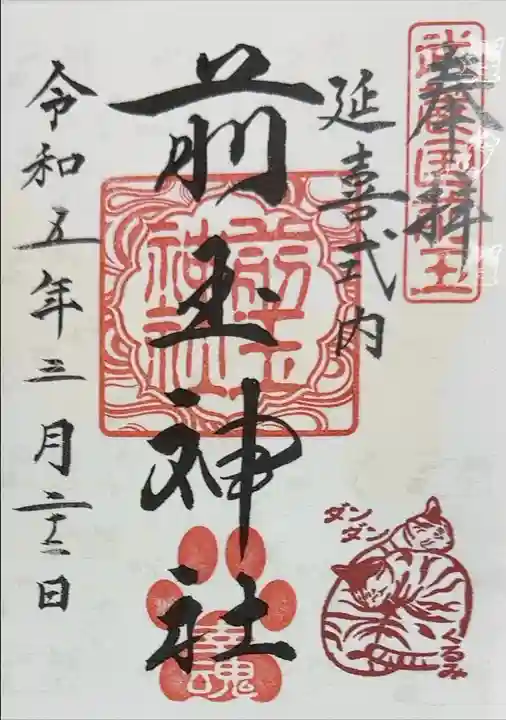 奉拝
武蔵国 玉
延喜式内
前玉神社
前玉
神社
幸魂
令和五年三月二十二日
ダン
ダン
くるみ